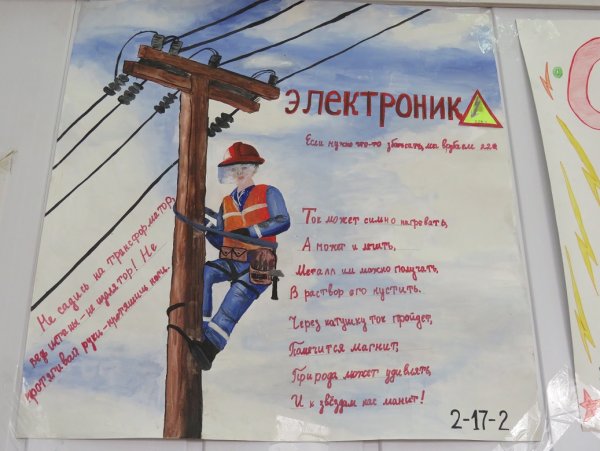 ЭЛЕКТРОНИК
Если нужно что-то збацать, мы врубаем 220
Не садись на трансформатор,
вед штаны - не изолятор! Не
протягивай руки - протянешь ноги.
Ток может сильно нагревать,
А может и лечить,
Металл им можно получать,
В раствор его пустить.
Через катушку ток пройдет,
Получится магнит;
Природа может удивлять,
И к звёздам нас манит!
2-17-2